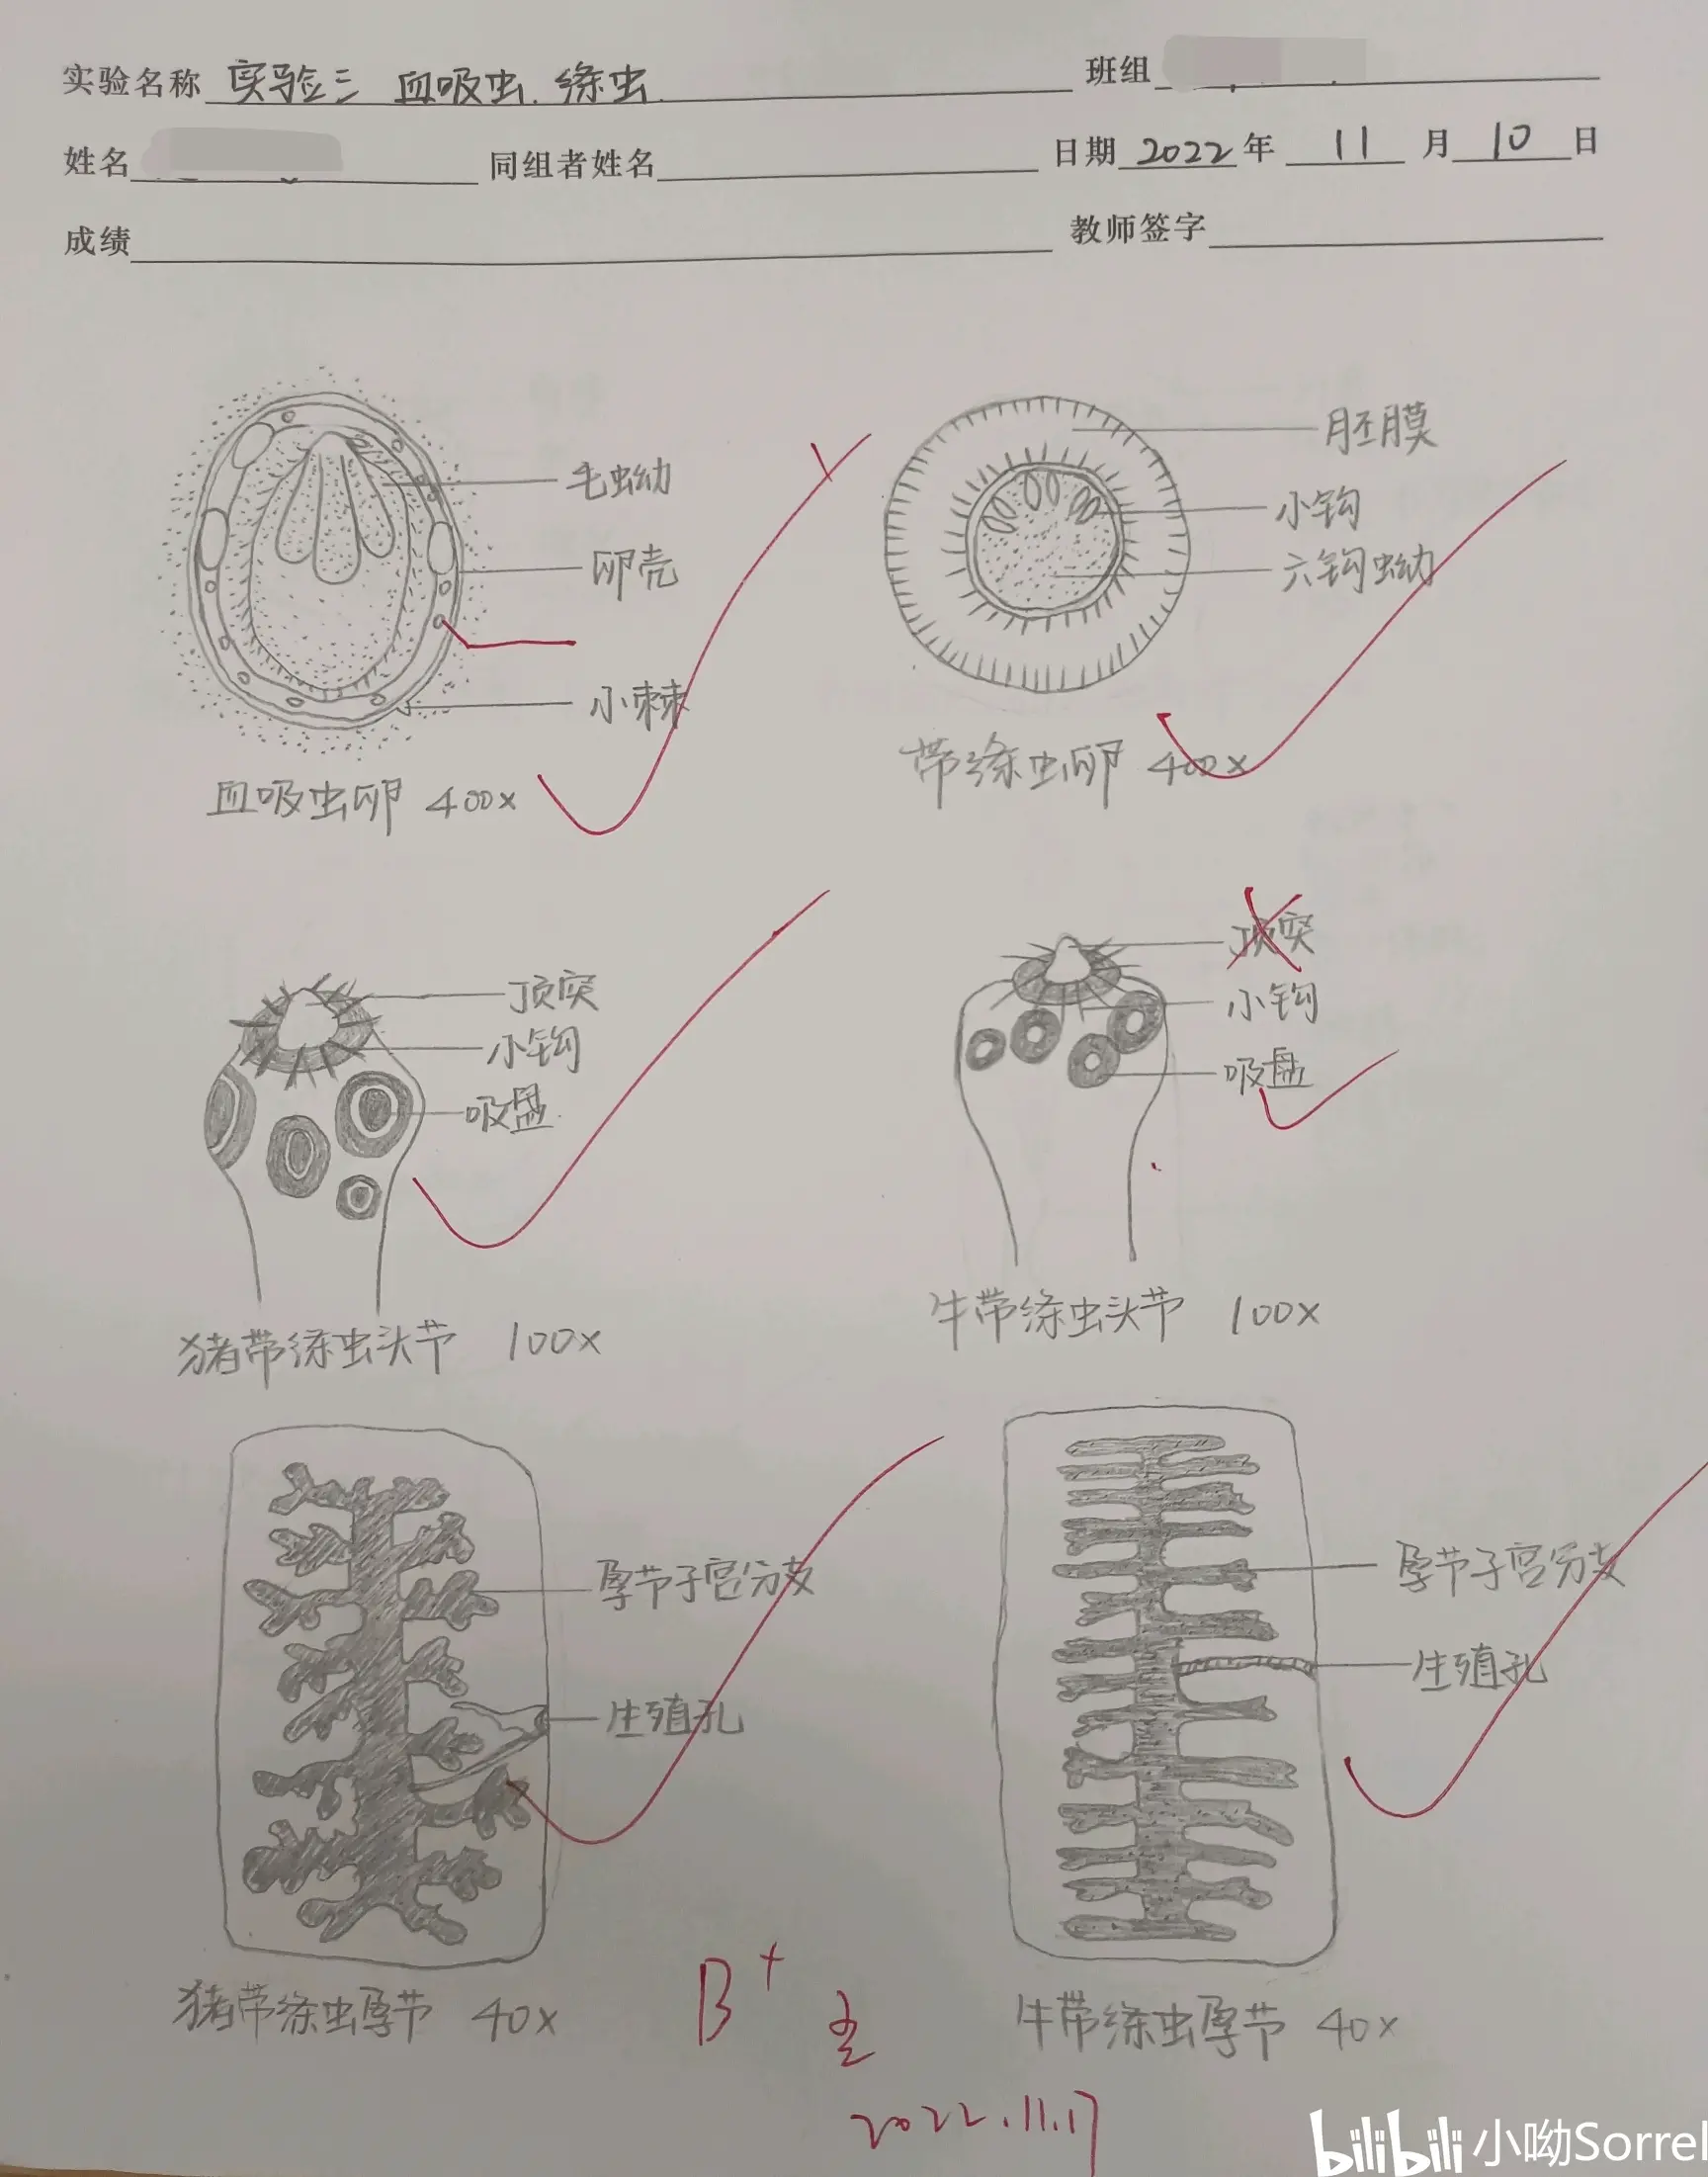 实验名称 实验三 血吸虫.绦虫.
班组
姓名
同组者姓名
日期 2022 年 11 月 10 日
成绩
教师签字
毛蚴
卵壳
小棘
血吸虫卵 400×
胚膜
小钩
六钩蚴
带绦虫卵 400×
顶突
小钩
吸盘
猪带绦虫头节 100×
顶突
小钩
吸盘
牛带绦虫头节 100×
孕节子宫分支
生殖孔
猪带绦虫孕节 40×
孕节子宫分支
生殖孔
牛带绦虫孕节 40×
B+
2022.11.17
bilibili 小呦Sorrel